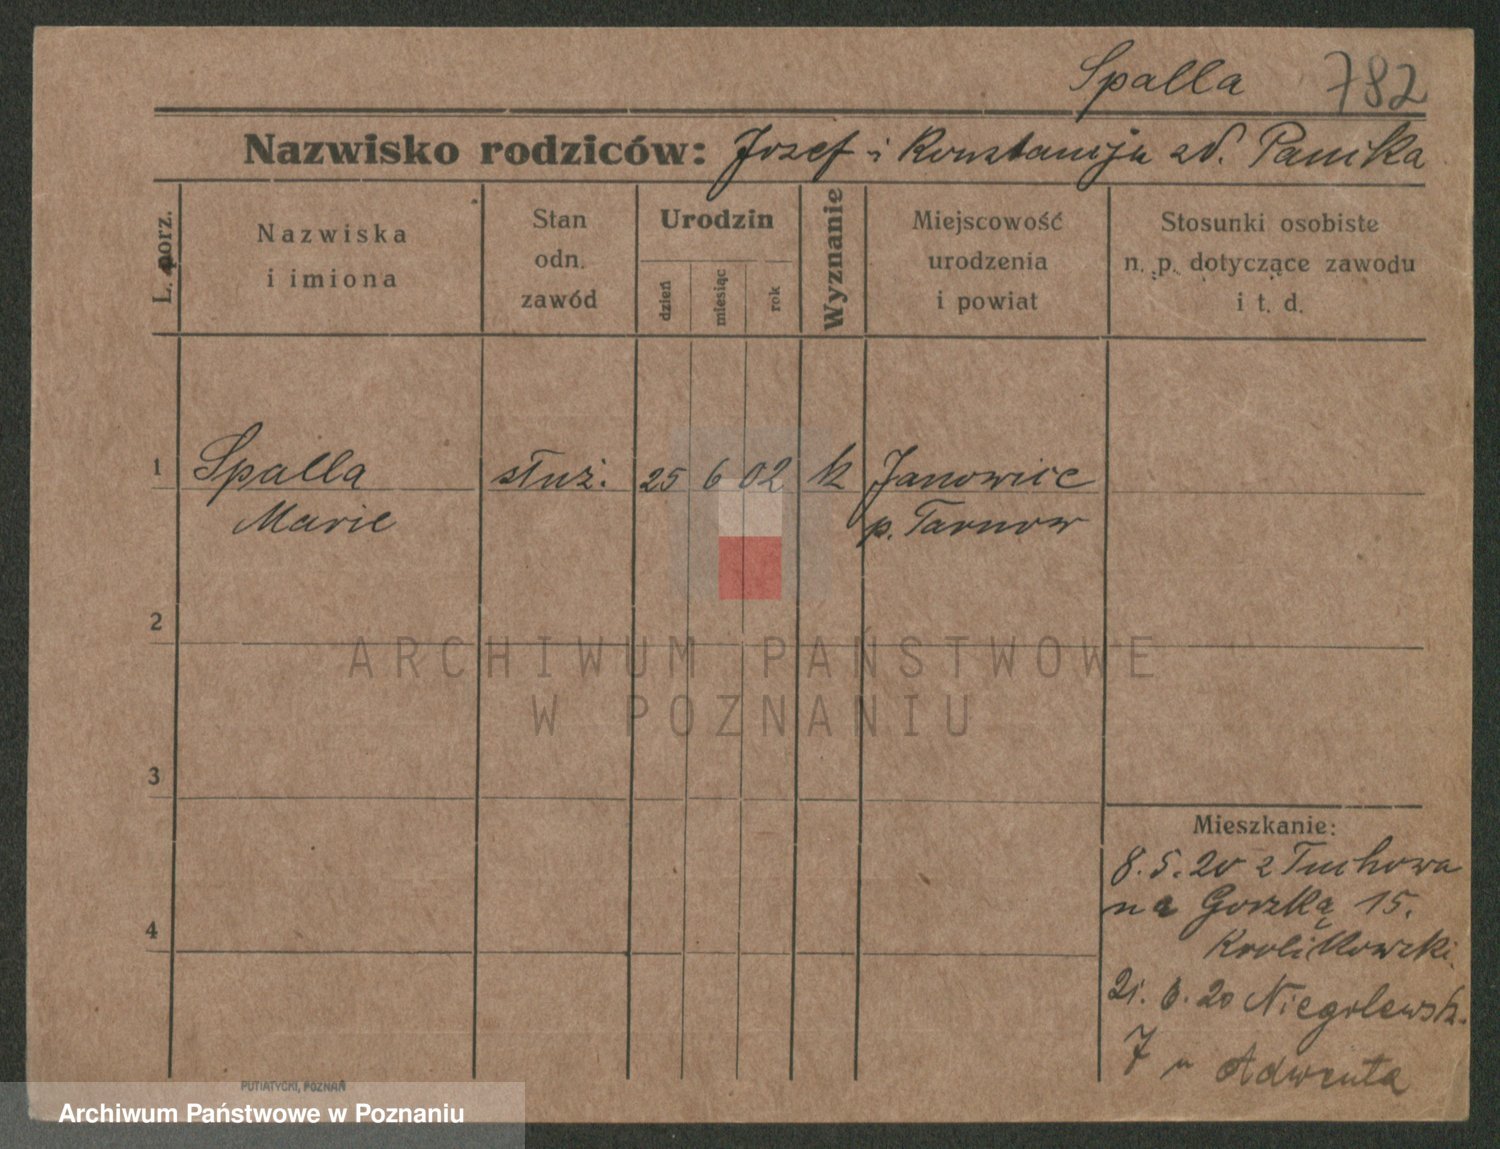 Spalla 782
Nazwisko rodziców: Jozef i Konstancja zd. Panika
L. porz.
Nazwiska
i imiona
Stan
odn.
zawód
Urodzin
dzień
miesiąc
rok
Wyznanie
Miejscowość
urodzenia
i powiat
Stosunki osobiste
n. p. dotyczące zawodu
i t. d.
1 Spalla służ. 25 6 02 k Janowice
Marie p. Tarnow
2
ARCHIWUM PAŃSTWOWE
W POZNANIU
3
Mieszkanie:
8.5.20 z Tuchowa
na Gorzką 15.
4
Krolikowski.
21. 6. 20 Niegolewsk.
7 u Adwenta
PUTIATYCKI, POZNAŃ
Archiwum Państwowe w Poznaniu